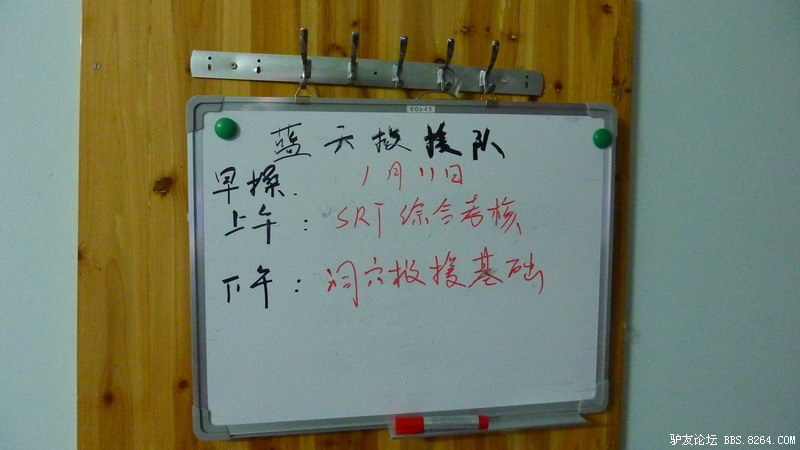 60x45
蓝天救援队
1月11日
早操.
上午: SRT综合考核
下午: 洞穴救援基础
驴友论坛 BBS.8264.com